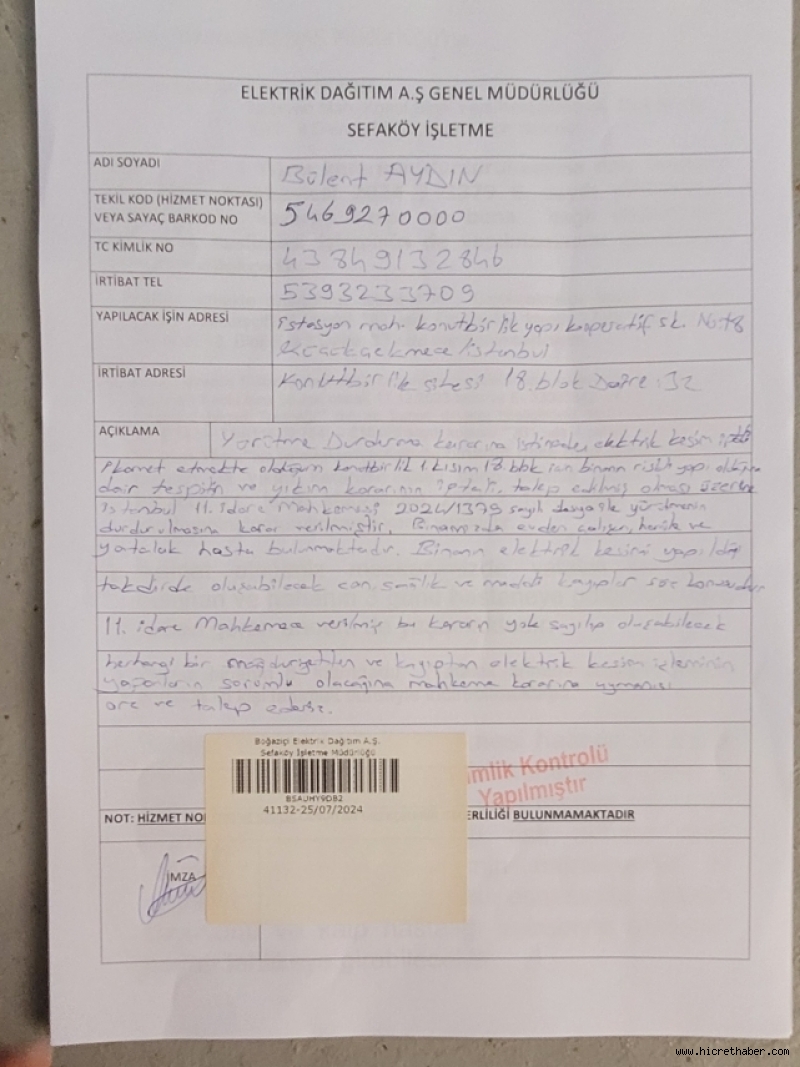 ELEKTRİK DAĞITIM A.Ş GENEL MÜDÜRLÜĞÜ
SEFAKÖY İŞLETME
ADI SOYADI
Bülent AYDIN
TEKİL KOD (HİZMET NOKTASI)
VEYA SAYAÇ BARKOD NO
5469270000
TC KİMLİK NO
43849132846
İRTİBAT TEL
5393233709
YAPILACAK İŞİN ADRESİ
istasyon mah. konutbirlik yapı kooperatif sk. No:
Küçükçekmece/istanbul
İRTİBAT ADRESİ
Konutbirlik sitesi 18.blok Daire:32
AÇIKLAMA
Yürütme Durdurma kararına istinaden elektrik kesim iptali
ikamet etmekte olduğum konutbirlik 1.kısım 18.blok için binanın riskli yapı olduğuna
dair tespitin ve yıkım kararının iptali talep edilmiş olması üzerine
istanbul 11. idare Mahkemesi 2024/1379 sayılı dosya ile yürütmenin
durdurulmasına karar verilmiştir. Binamızda evden çalışan, ve
yatalak hasta bulunmaktadır. Binanın elektrik kesimi yapıldığı
takdirde oluşabilecek can, sağlık ve maddi kayıplar söz konusudur
11. idare Mahkemece verilmiş bu kararın yok sayılıp oluşabilecek
herhangi bir mağduriyetten ve kayıptan elektrik kesim işleminin
yapanların sorumlu olacağına mahkeme kararına uymanızı
arz ve talep ederiz.
Boğaziçi Elektrik Dağıtım A.Ş.
Sefaköy İşletme Müdürlüğü
BSAUHY9DB2
41132-25/07/2024
Kontrolü
Yapılmıştır
NOT: HİZMET BULUNMAMAKTADIR
İMZA
www.hicrethaber.com